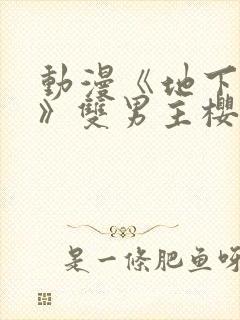 動漫《地下
》雙男主櫻
是一條肥鱼呀